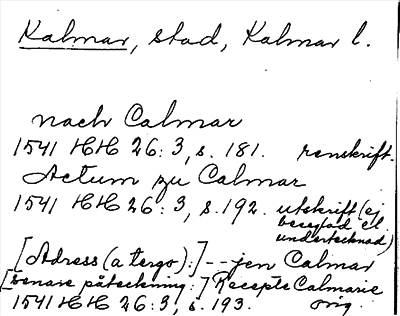 Kalmar, stad, Kalmar l.
nach Calmar
1541 HH 26:3, s. 181. renskrift.
Actum zu Calmar
1541 HH 26:3, s. 192. utskrift (ej
beseglad el.
undertecknad)
[Adress (a tergo):] -- jen Calmar
[senare påteckning:] Recepte Calmarie
1541 HH 26:3, s. 193. orig.